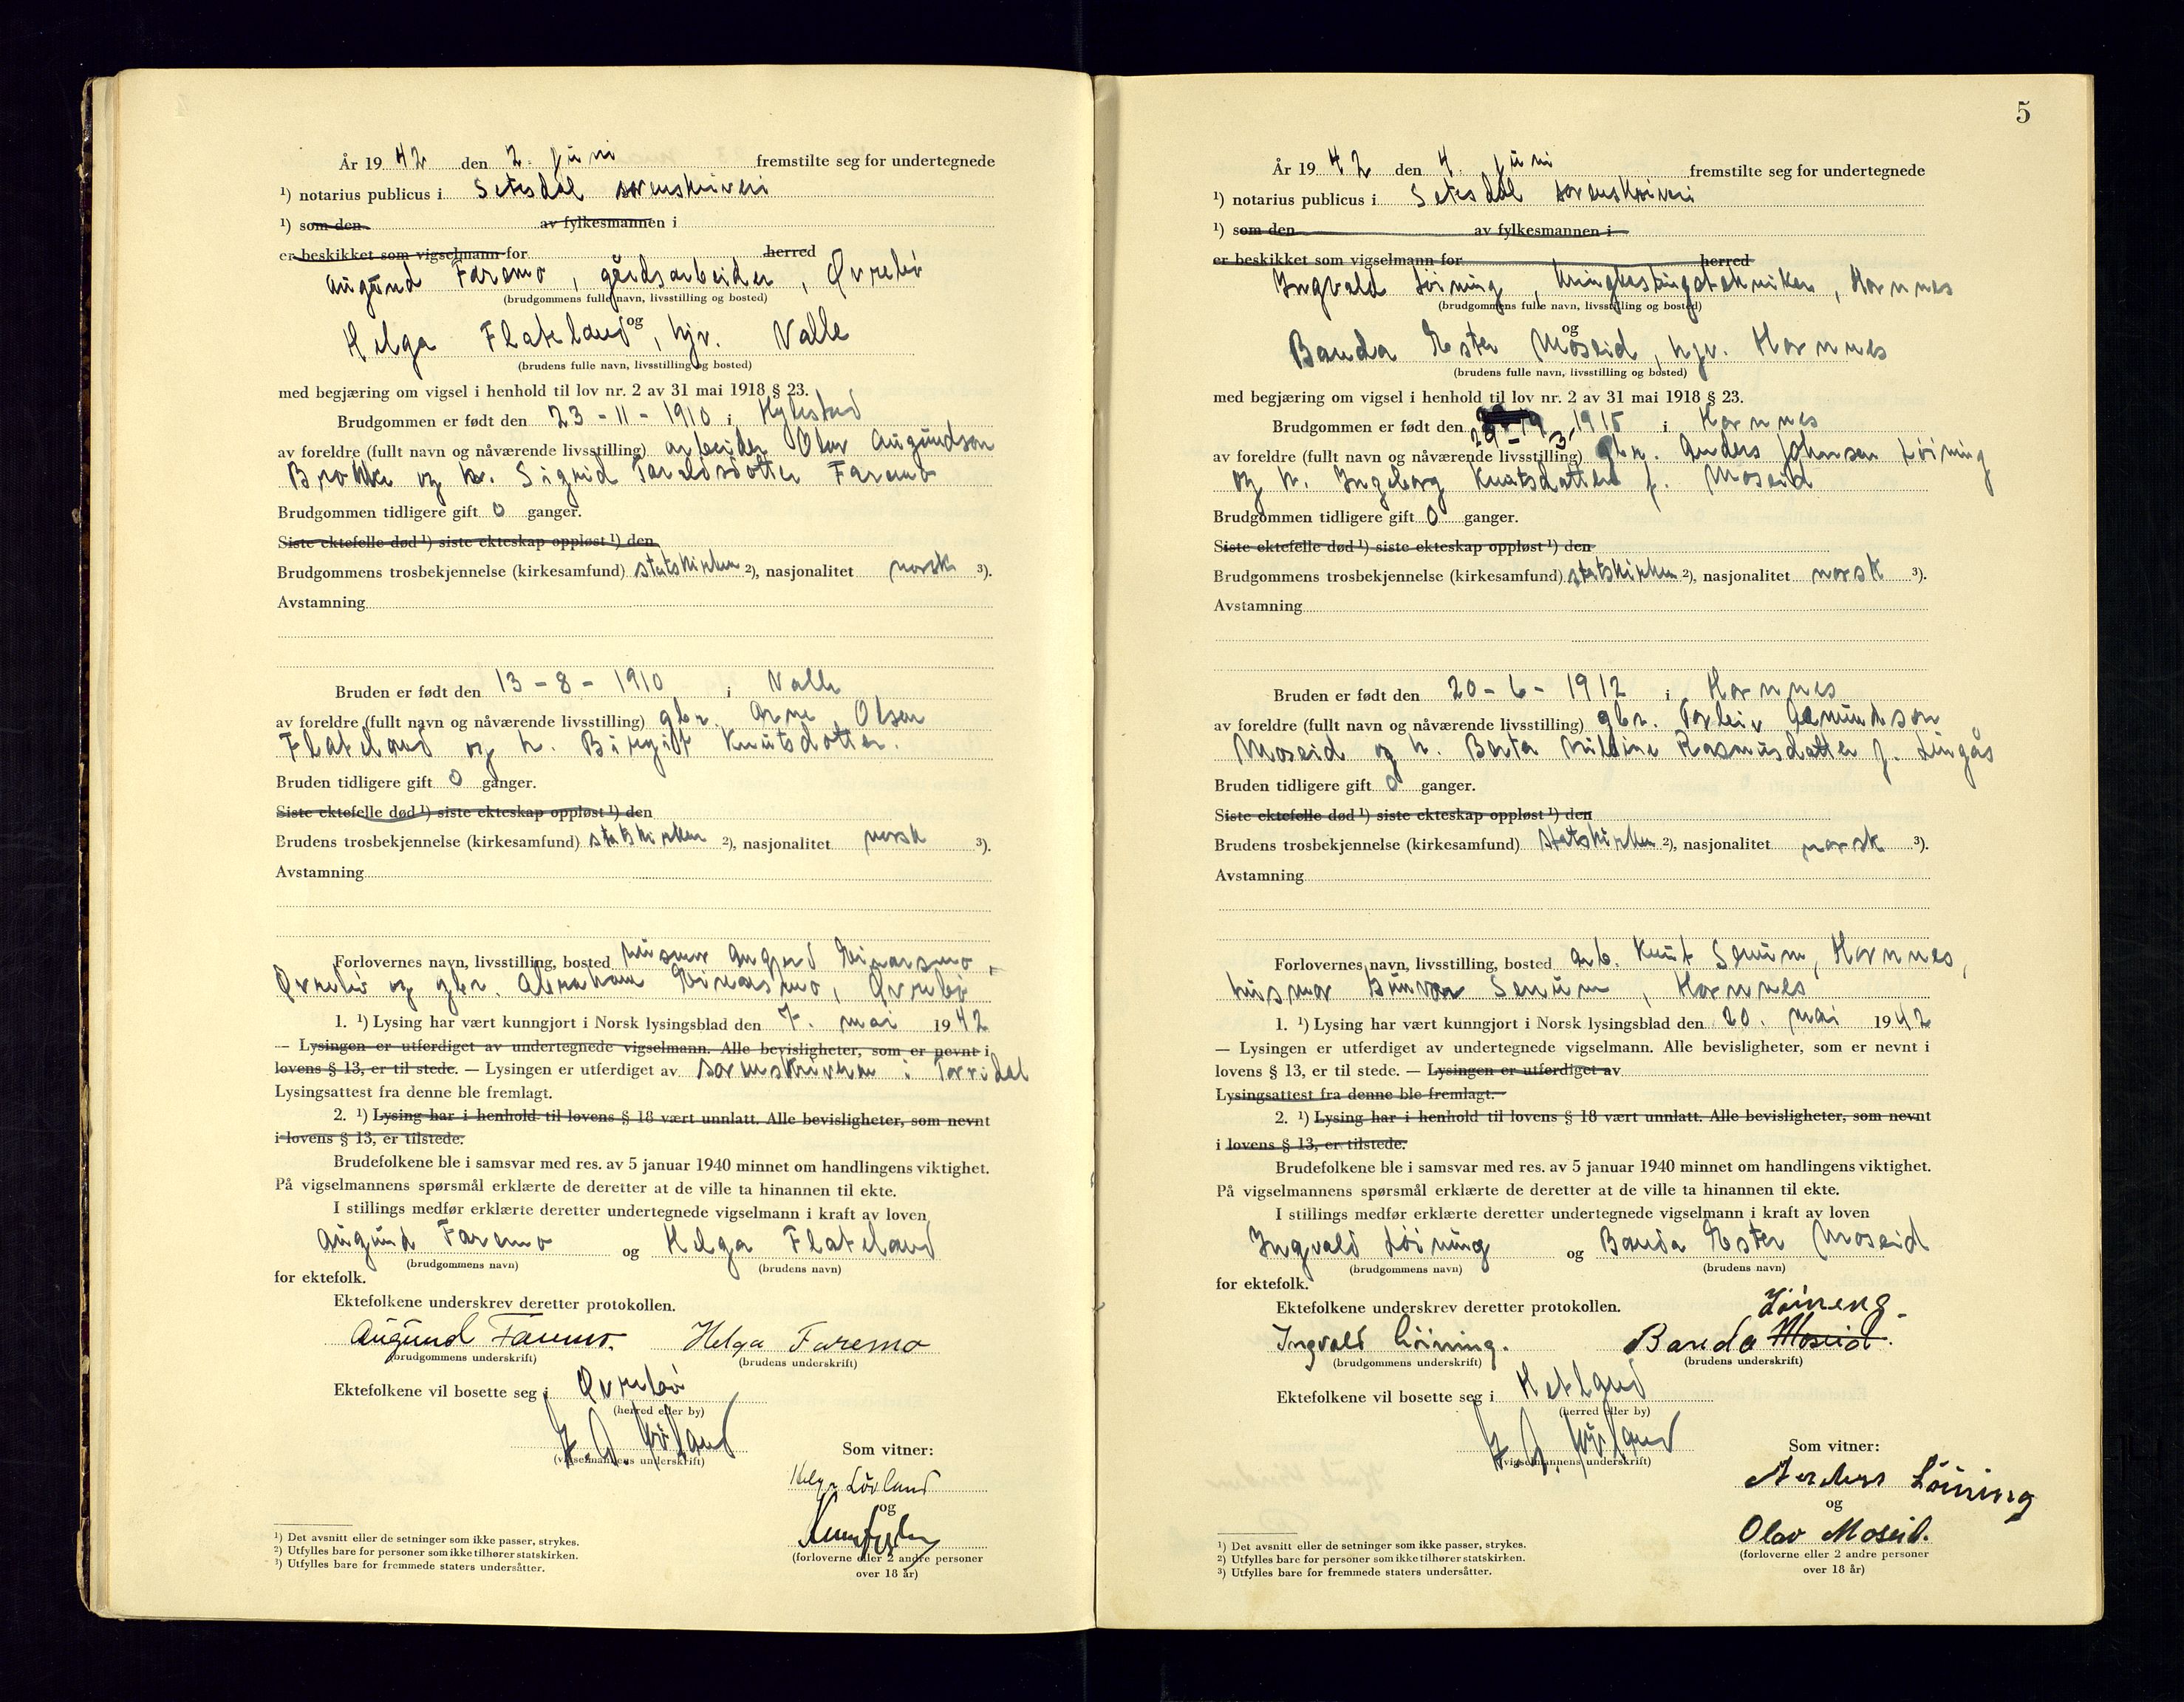 År 1942 den 2. juni fremstilte seg for undertegnede
¹) notarius publicus i Setesdal sorenskriveri
¹) som den av fylkesmannen i
er beskikket som vigselmann for herred
Augund Faremo, gårdsarbeider, Øvrebö
(brudgommens fulle navn, livsstilling og bosted)
og
Helga Flateland, hjv. Valle
(brudens fulle navn, livsstilling og bosted)
med begjæring om vigsel i henhold til lov nr. 2 av 31 mai 1918 § 23.
Brudgommen er født den 23 - 11 - 1910 i Hylestad
av foreldre (fullt navn og nåværende livsstilling) arbeider Olav Augundson
Brokke og h. Sigrid Taraldsdotter Faremo
Brudgommen tidligere gift 0 ganger.
Siste ektefelle død ¹) siste ekteskap oppløst ¹) den
Brudgommens trosbekjennelse (kirkesamfund) statskirken ²), nasjonalitet norsk ³).
Avstamning
Bruden er født den 13 - 8 - 1910 i Valle
av foreldre (fullt navn og nåværende livsstilling) gbr. Arne Olsen
Flateland og h. Birgit Knutsdotter.
Bruden tidligere gift 0 ganger.
Siste ektefelle død ¹) siste ekteskap oppløst ¹) den
Brudens trosbekjennelse (kirkesamfund) statskirken ²), nasjonalitet norsk ³).
Avstamning
Forlovernes navn, livsstilling, bosted husmor Einarsmo,
Øvrebö og gbr. Abraham Einarsmo, Øvrebö
1. ¹) Lysing har vært kunngjort i Norsk lysingsblad den 7. mai 1942
— Lysingen er utferdiget av undertegnede vigselmann. Alle bevisligheter, som er nevnt i
lovens § 13, er til stede. — Lysingen er utferdiget av sorenskriveren i Torridal
Lysingsattest fra denne ble fremlagt.
2. ¹) Lysing har i henhold til lovens § 18 vært unnlatt. Alle bevisligheter, som nevnt
i lovens § 13, er tilstede.
Brudefolkene ble i samsvar med res. av 5 januar 1940 minnet om handlingens viktighet.
På vigselmannens spørsmål erklærte de deretter at de ville ta hinannen til ekte.
I stillings medfør erklærte deretter undertegnede vigselmann i kraft av loven
Augund Faremo og Helga Flateland
(brudgommens navn) (brudens navn)
for ektefolk.
Ektefolkene underskrev deretter protokollen.
Augund Faremo. Helga Faremo
(brudgommens underskrift) (brudens underskrift)
Ektefolkene vil bosette seg i Øvrebö
(herred eller by)
(vigselmannens underskrift)
Som vitner:
Helge Lövland
og
(forloverne eller 2 andre personer
over 18 år)
¹) Det avsnitt eller de setninger som ikke passer, strykes.
²) Utfylles bare for personer som ikke tilhører statskirken.
³) Utfylles bare for fremmede staters undersåtter.
5
År 1942 den 4. juni fremstilte seg for undertegnede
¹) notarius publicus i Setesdal sorenskriveri
¹) som den av fylkesmannen i
er beskikket som vigselmann for herred
Ingvald Löining, kringkastingstekniker, Hornnes
(brudgommens fulle navn, livsstilling og bosted)
og
Bauda Ester Moseid, hjv. Hornnes
(brudens fulle navn, livsstilling og bosted)
med begjæring om vigsel i henhold til lov nr. 2 av 31 mai 1918 § 23.
Brudgommen er født den 29 - 3 1915 i Hornnes
av foreldre (fullt navn og nåværende livsstilling) gbr. Anders Johnsen Löining
og h. Ingeborg Knutsdatter f. Moseid
Brudgommen tidligere gift 0 ganger.
Siste ektefelle død ¹) siste ekteskap oppløst ¹) den
Brudgommens trosbekjennelse (kirkesamfund) statskirken ²), nasjonalitet norsk ³).
Avstamning
Bruden er født den 20 - 6 - 1912 i Hornnes
av foreldre (fullt navn og nåværende livsstilling) gbr. Torleiv Omundson
Moseid og h. Berta Rasmusdatter f. Lingås
Bruden tidligere gift 0 ganger.
Siste ektefelle død ¹) siste ekteskap oppløst ¹) den
Brudens trosbekjennelse (kirkesamfund) statskirken ²), nasjonalitet norsk ³).
Avstamning
Forlovernes navn, livsstilling, bosted arb. Knut Senum, Hornnes,
husmor Gunvor Senum, Hornnes
1. ¹) Lysing har vært kunngjort i Norsk lysingsblad den 20. mai 1942
— Lysingen er utferdiget av undertegnede vigselmann. Alle bevisligheter, som er nevnt i
lovens § 13, er til stede. — Lysingen er utferdiget av
Lysingsattest fra denne ble fremlagt.
2. ¹) Lysing har i henhold til lovens § 18 vært unnlatt. Alle bevisligheter, som nevnt
i lovens § 13, er tilstede.
Brudefolkene ble i samsvar med res. av 5 januar 1940 minnet om handlingens viktighet.
På vigselmannens spørsmål erklærte de deretter at de ville ta hinannen til ekte.
I stillings medfør erklærte deretter undertegnede vigselmann i kraft av loven
Ingvald Löining og Bauda Ester Moseid
(brudgommens navn) (brudens navn)
for ektefolk.
Ektefolkene underskrev deretter protokollen.
Löineng
Ingvald Löining. Bauda Moseid.
(brudgommens underskrift) (brudens underskrift)
Ektefolkene vil bosette seg i Hetland
(herred eller by)
(vigselmannens underskrift)
Som vitner:
Anders Löining
og
Olav Moseid.
(forloverne eller 2 andre personer
over 18 år)
¹) Det avsnitt eller de setninger som ikke passer, strykes.
²) Utfylles bare for personer som ikke tilhører statskirken.
³) Utfylles bare for fremmede staters undersåtter.